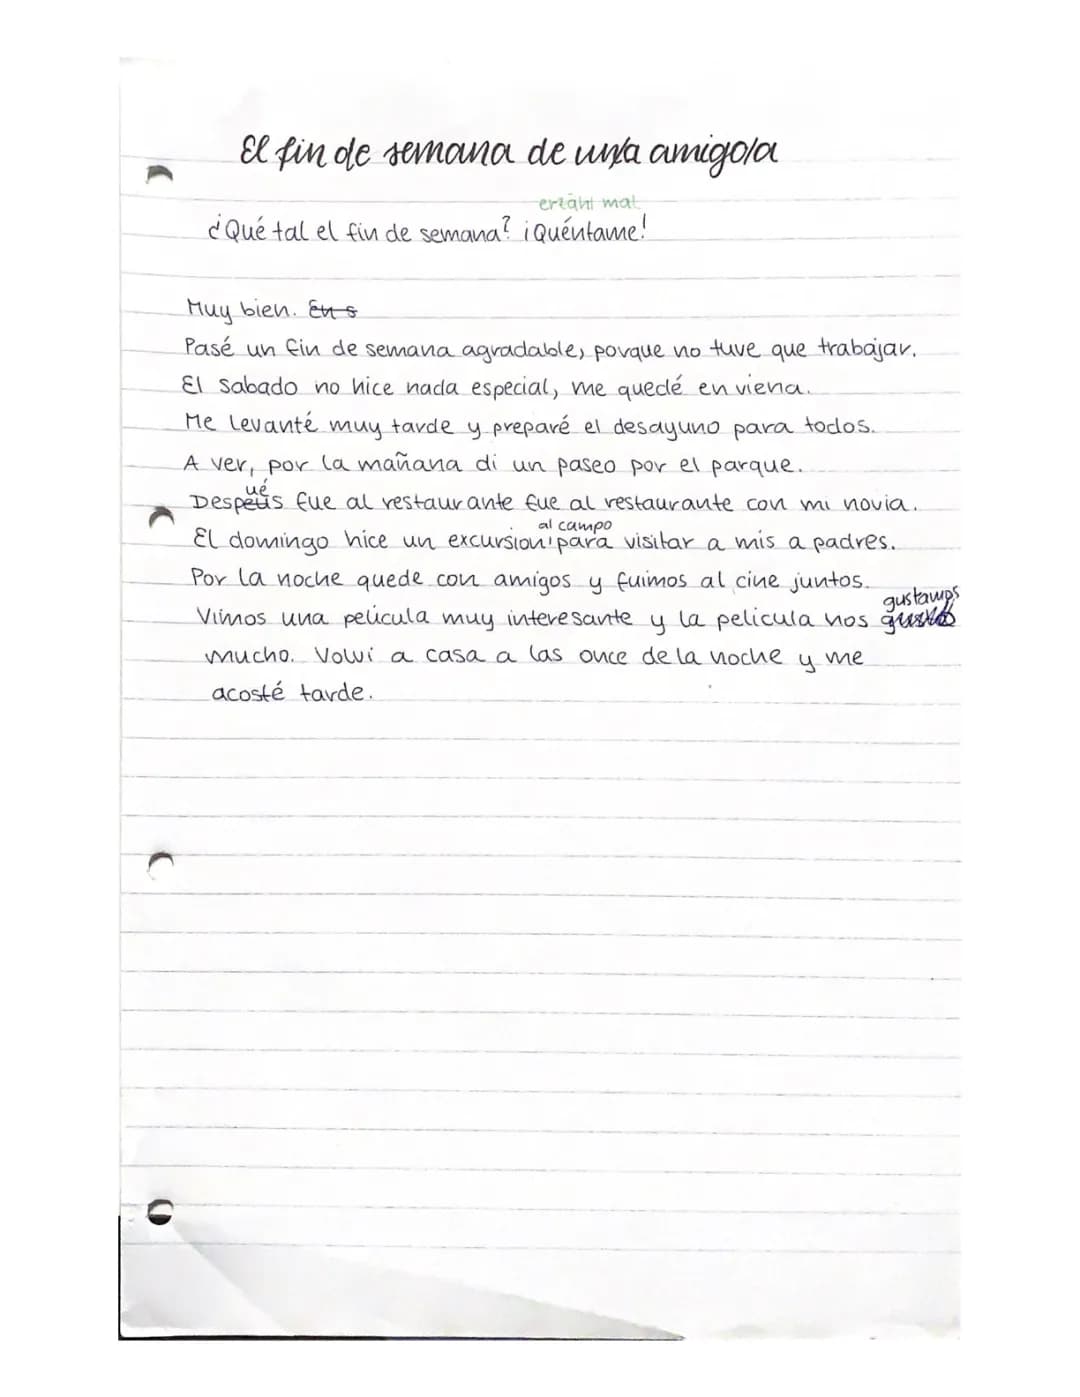 El fin de semana de un/a amigo/a
erzähl mal
¿Qué tal el fin de semana? ¡Quéntame!
Muy bien. En s
Pasé un fin de semana agradable, porque no tuve que trabajar.
El Sabado no hice nada especial, me quedé en viena.
Me levanté muy tarde y preparé el desayuno para todos.
A ver, por la mañana di un paseo por el parque.
ué
Despeús fue al restaurante fue al restaurante con mi novia.
al campo
El domingo hice un excursion para visitar a mis a padres.
Por la noche quede con amigos y fuimos al cine juntos.
gustamos
Vimos una película muy interesante y la pelicula nos gustó
mucho. Volví a casa a las once de la noche y me
acosté tarde.